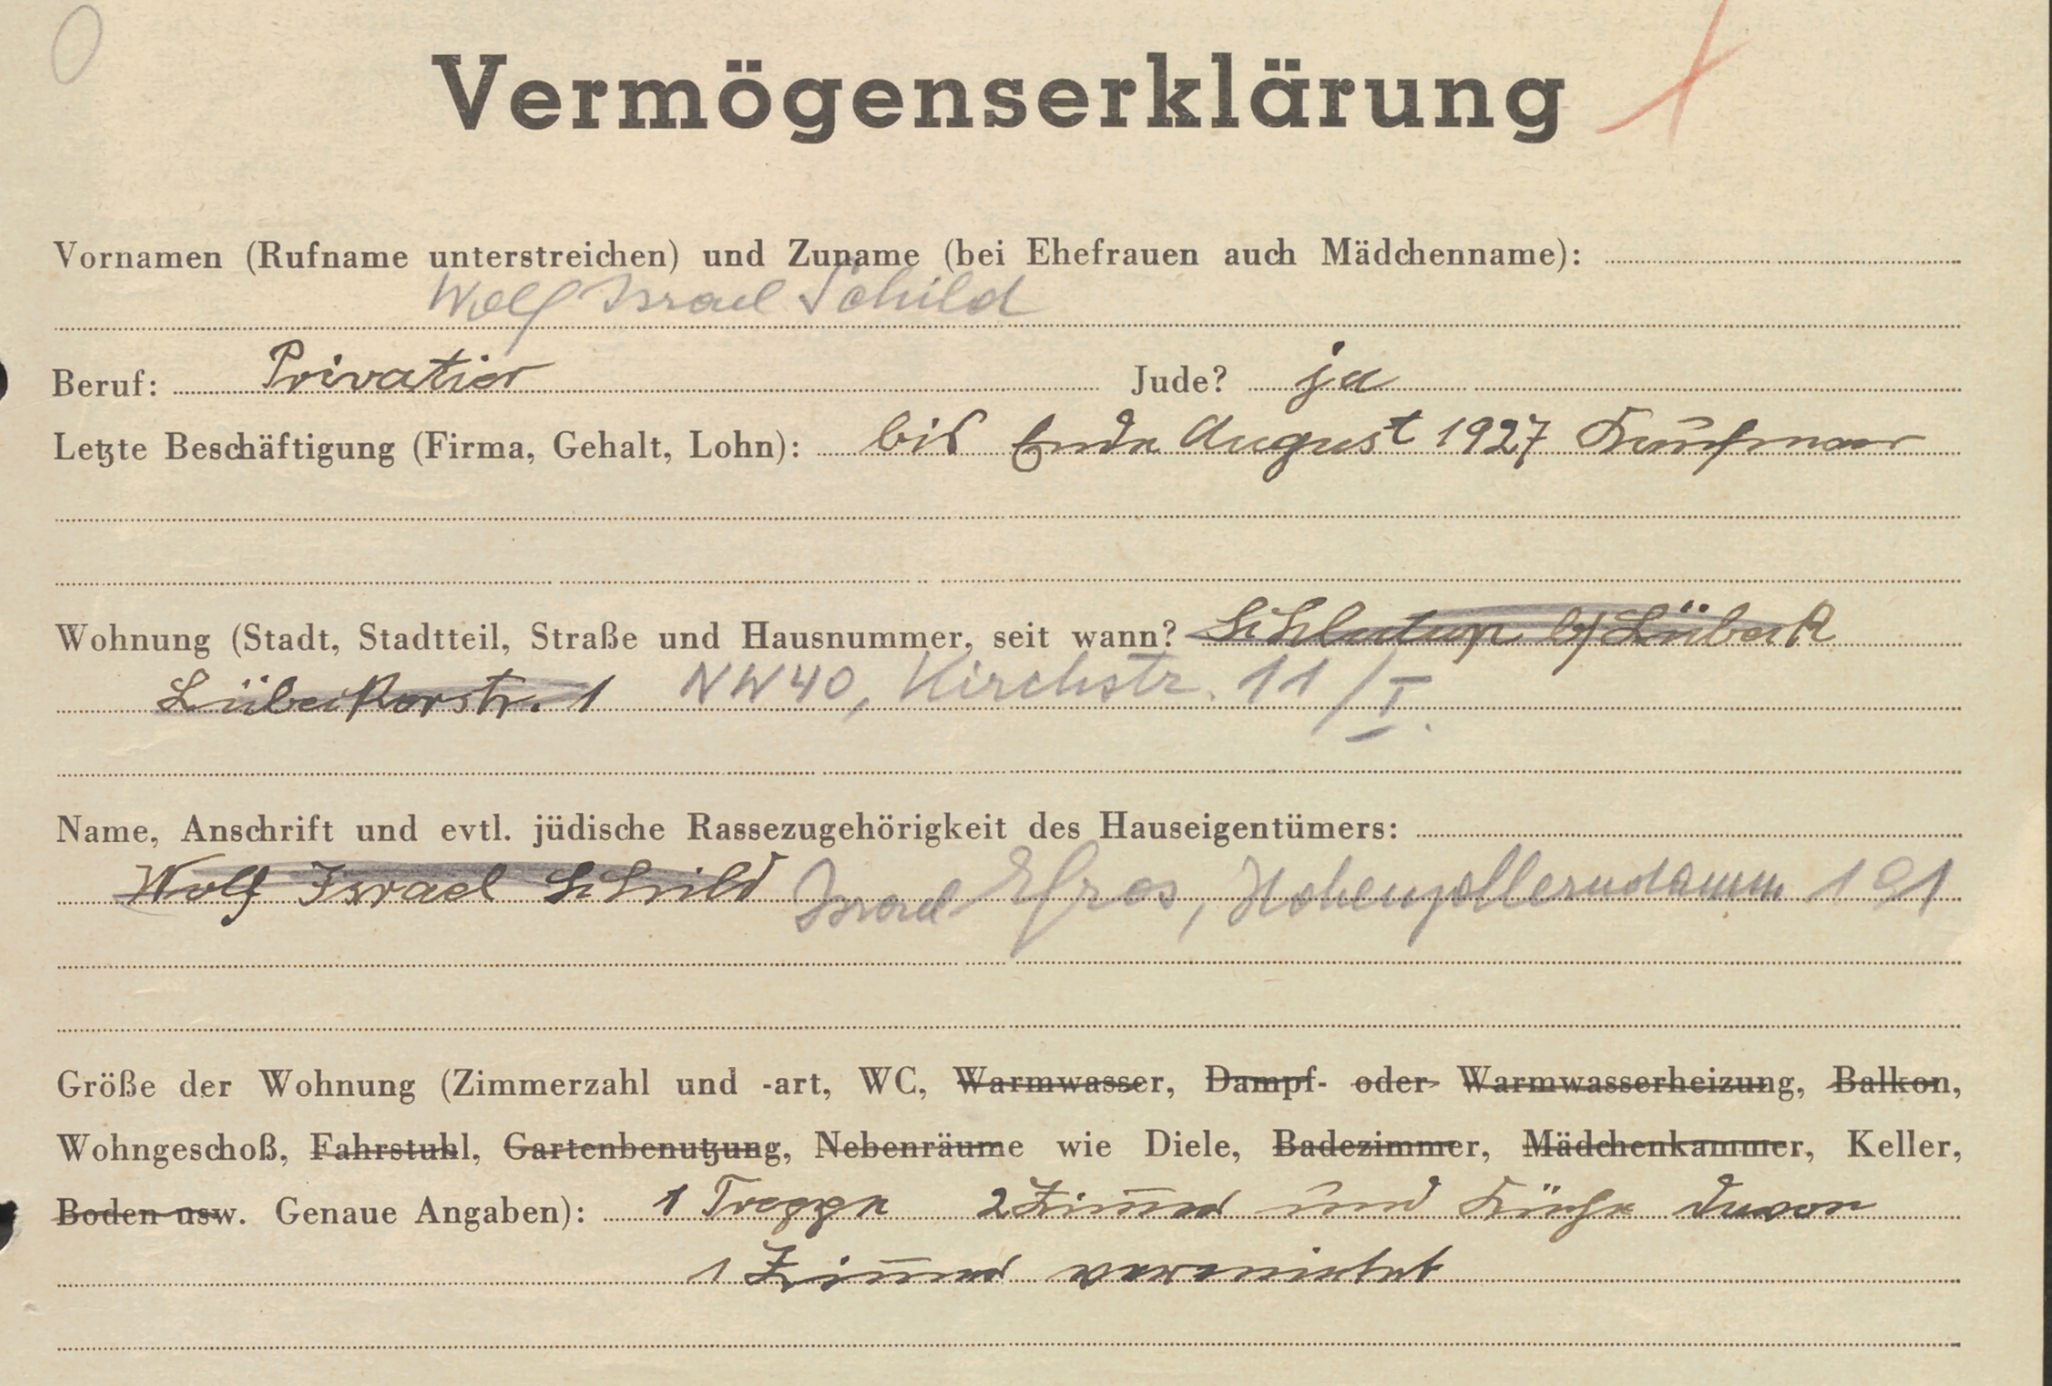 Vermögenserklärung
Vornamen (Rufname unterstreichen) und Zuname (bei Ehefrauen auch Mädchenname):
Wolf Israel Schild
Beruf: Privatier Jude? ja
Letzte Beschäftigung (Firma, Gehalt, Lohn): bis Ende August 1927 Kaufmann
Wohnung (Stadt, Stadtteil, Straße und Hausnummer, seit wann? Schlutup b/Lübeck
Lübeckerstr. 1 NW40, Kirchstr. 11/I.
Name, Anschrift und evtl. jüdische Rassezugehörigkeit des Hauseigentümers:
Wolf Israel Schild Israel Efros, Hohenzollerndamm 191
Größe der Wohnung (Zimmerzahl und -art, WC, Warmwasser, Dampf- oder Warmwasserheizung, Balkon,
Wohngeschoß, Fahrstuhl, Gartenbenutzung, Nebenräume wie Diele, Badezimmer, Mädchenkammer, Keller,
Boden usw. Genaue Angaben): 1 Treppe 2 Zimmer und Küche davon
1 Zimmer vermietet